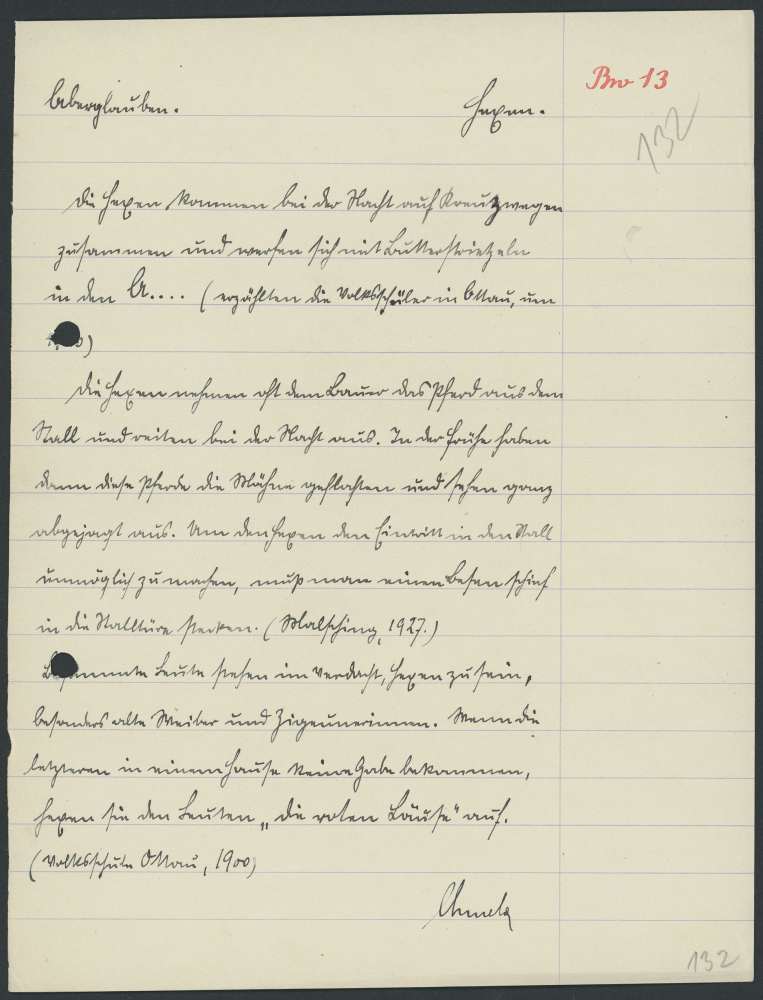 Bw 13
Aberglauben. Hexen.
132
Die Hexen kommen bei der Nacht auf Kreuzwegen
zusammen und werfen sich mit Butterstriezeln
in den A.... (erzählten die Volksschüler in Ottau, um
)
Die Hexen nehmen oft dem Bauer das Pferd aus dem
Stall und reiten bei der Nacht aus. In der Frühe haben
dann diese Pferde die Mähne geflochten und sehen ganz
abgejagt aus. Um den Hexen den Eintritt in den Stall
unmöglich zu machen, muß man einen Besen schief
in die Stalltüre stecken. (Malsching, 1927.)
Leute stehen im Verdacht, Hexen zu sein,
besonders alte Weiber und Zigeunerinnen. Wenn die
letzteren in einem Hause keine Gabe bekommen,
hexen sie den Leuten „die roten Läuse" auf.
(Volksschule Ottau, 1900)
132